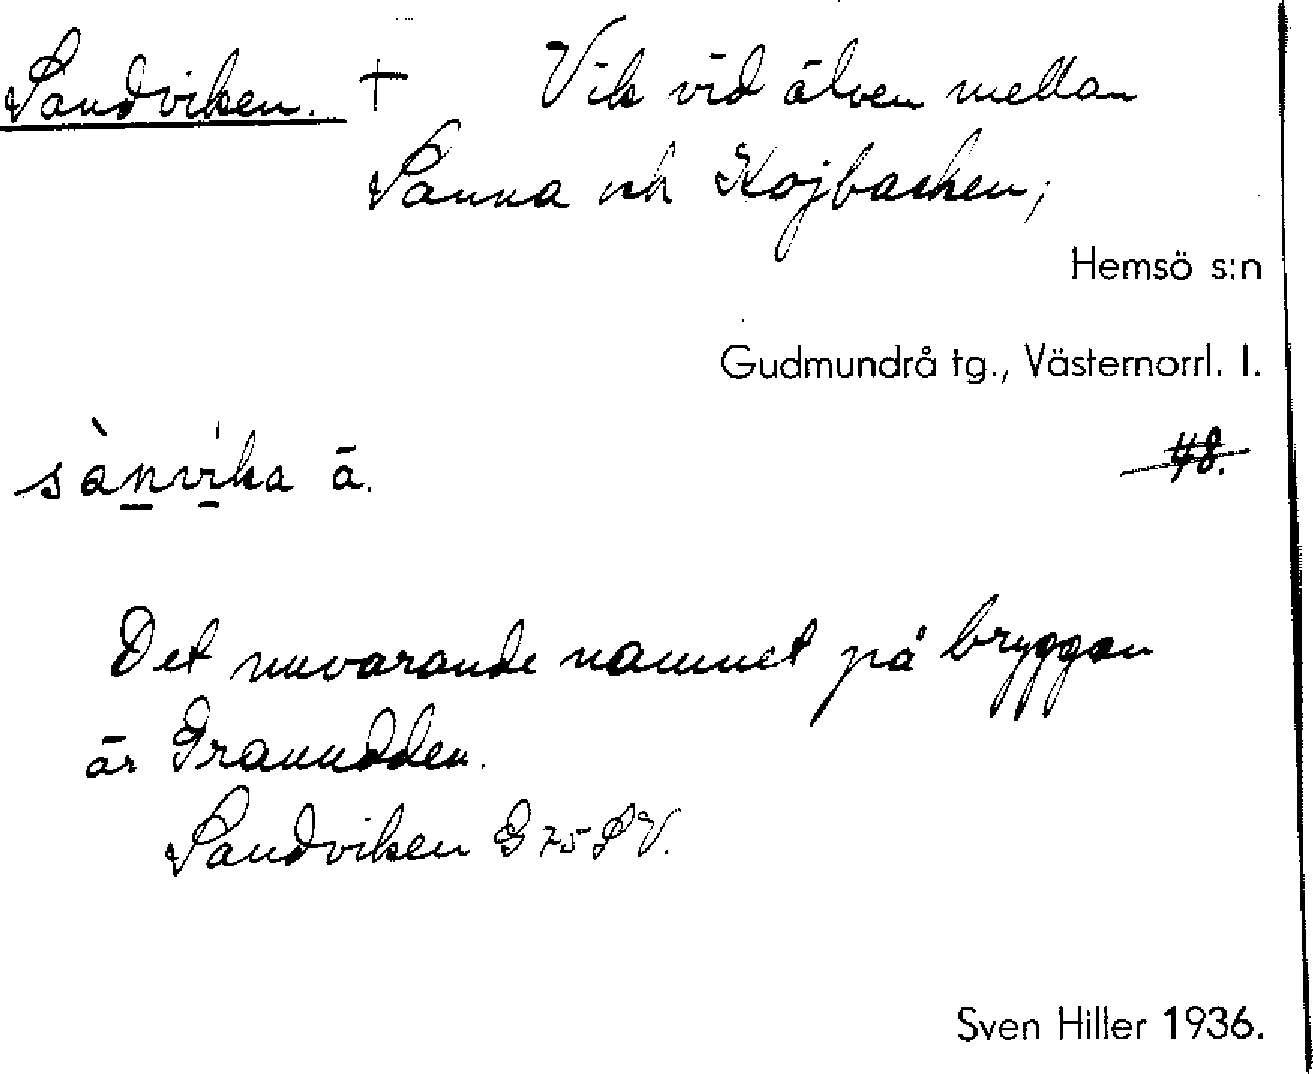 Sandviken. † Vik vid älven mellan
Sanna och Kojbacken;
Hemsö s:n
Gudmundrå tg., Västernorrl. l.
sànvika ä.
48.
Det nuvarande namnet på bryggan
är Granudden.
Sandviken G 75 SV.
Sven Hiller 1936.